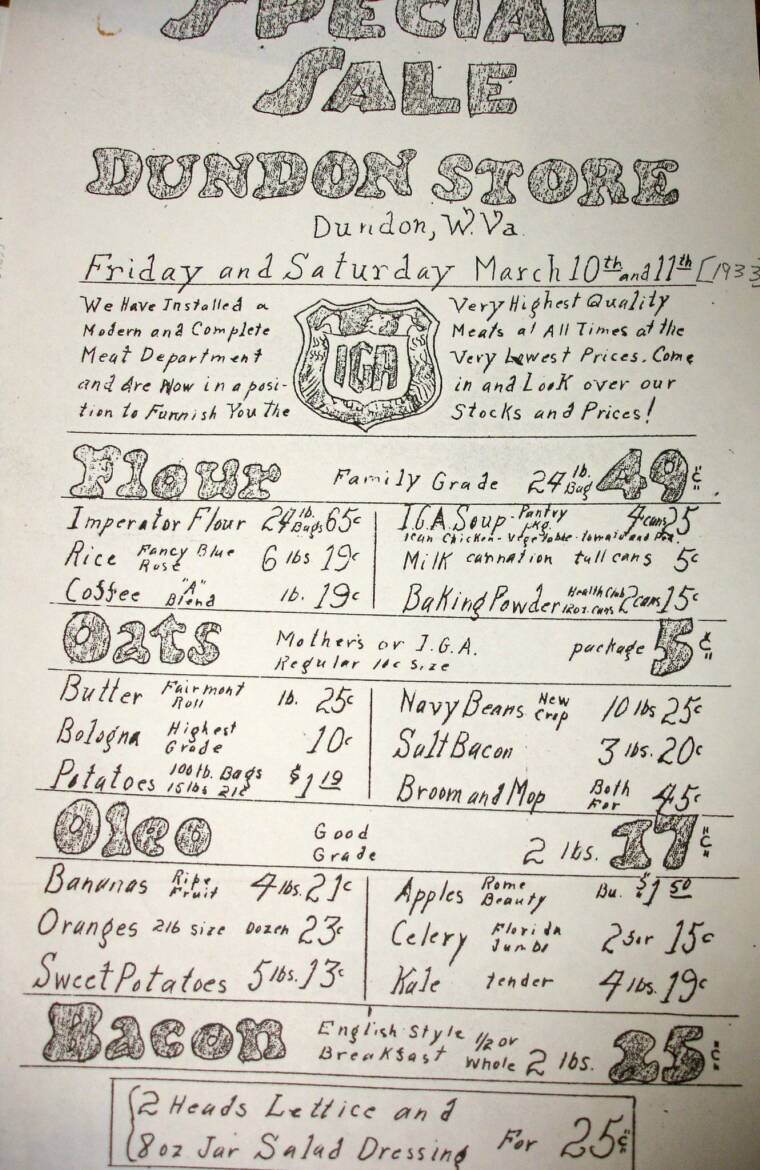 SPECIAL
SALE
DUNDON STORE
Dundon, W. Va.
Friday and Saturday March 10th and 11th [1933
We Have Installed a
Modern and Complete
Meat Department
and Are Now in a posi-
tion to Furnish You the
IGA
Very Highest Quality
Meats at All Times at the
Very Lowest Prices. Come
in and Look over our
Stocks and Prices!
Flour Family Grade 24 lb. Bag 49¢
Imperator Flour 24 lb. Bags 65¢
Rice Fancy Blue Rose 6 lbs 19¢
Coffee "A" Blend lb. 19¢
I.G.A. Soup - Pantry pkg. 4 cans 25
1 can Chicken - Vegetable - tomato and Pea.
Milk carnation tall cans 5¢
Baking Powder Health Club 12oz. cans 2 cans 15¢
Oats Mother's or I.G.A. Regular 10c Size package 5¢
Butter Fairmont Roll lb. 25¢
Bologna Highest Grade 10¢
Potatoes 100 lb. Bags $1.19
15 lbs 21¢
Navy Beans New Crop 10 lbs 25¢
Salt Bacon 3 lbs. 20¢
Broom and Mop Both For 45¢
Oleo Good Grade 2 lbs. 17¢
Bananas Ripe Fruit 4 lbs. 21¢
Oranges 216 size Dozen 23¢
Sweet Potatoes 5 lbs. 13¢
Apples Rome Beauty Bu. $1 50
Celery Florida Jumbo 2 for 15¢
Kale tender 4 lbs. 19¢
Bacon English Style Breakfast 1/2 or Whole 2 lbs. 25¢
2 Heads Lettice and
8 oz Jar Salad Dressing For 25¢